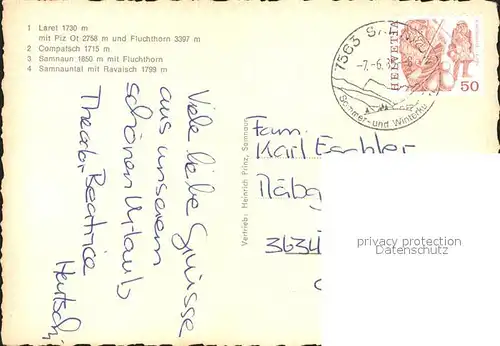 1 Laret 1730 m
mit Piz Ot 2758 m und Fluchthorn 3397 m
2 Compatsch 1715 m
3 Samnaun 1850 m mit Fluchthorn
4 Samnauntal mit Ravaisch 1799 m
Viele liebe Grüsse
aus unserem
schönen Urlaub
Theodor Beatrice
Vertrieb: Heinrich Prinz, Samnaun
7563
-7.-6.
Sommer- und Winterku
HELVETIA
50
Fam.
Karl
3634
privacy protection
Datenschutz